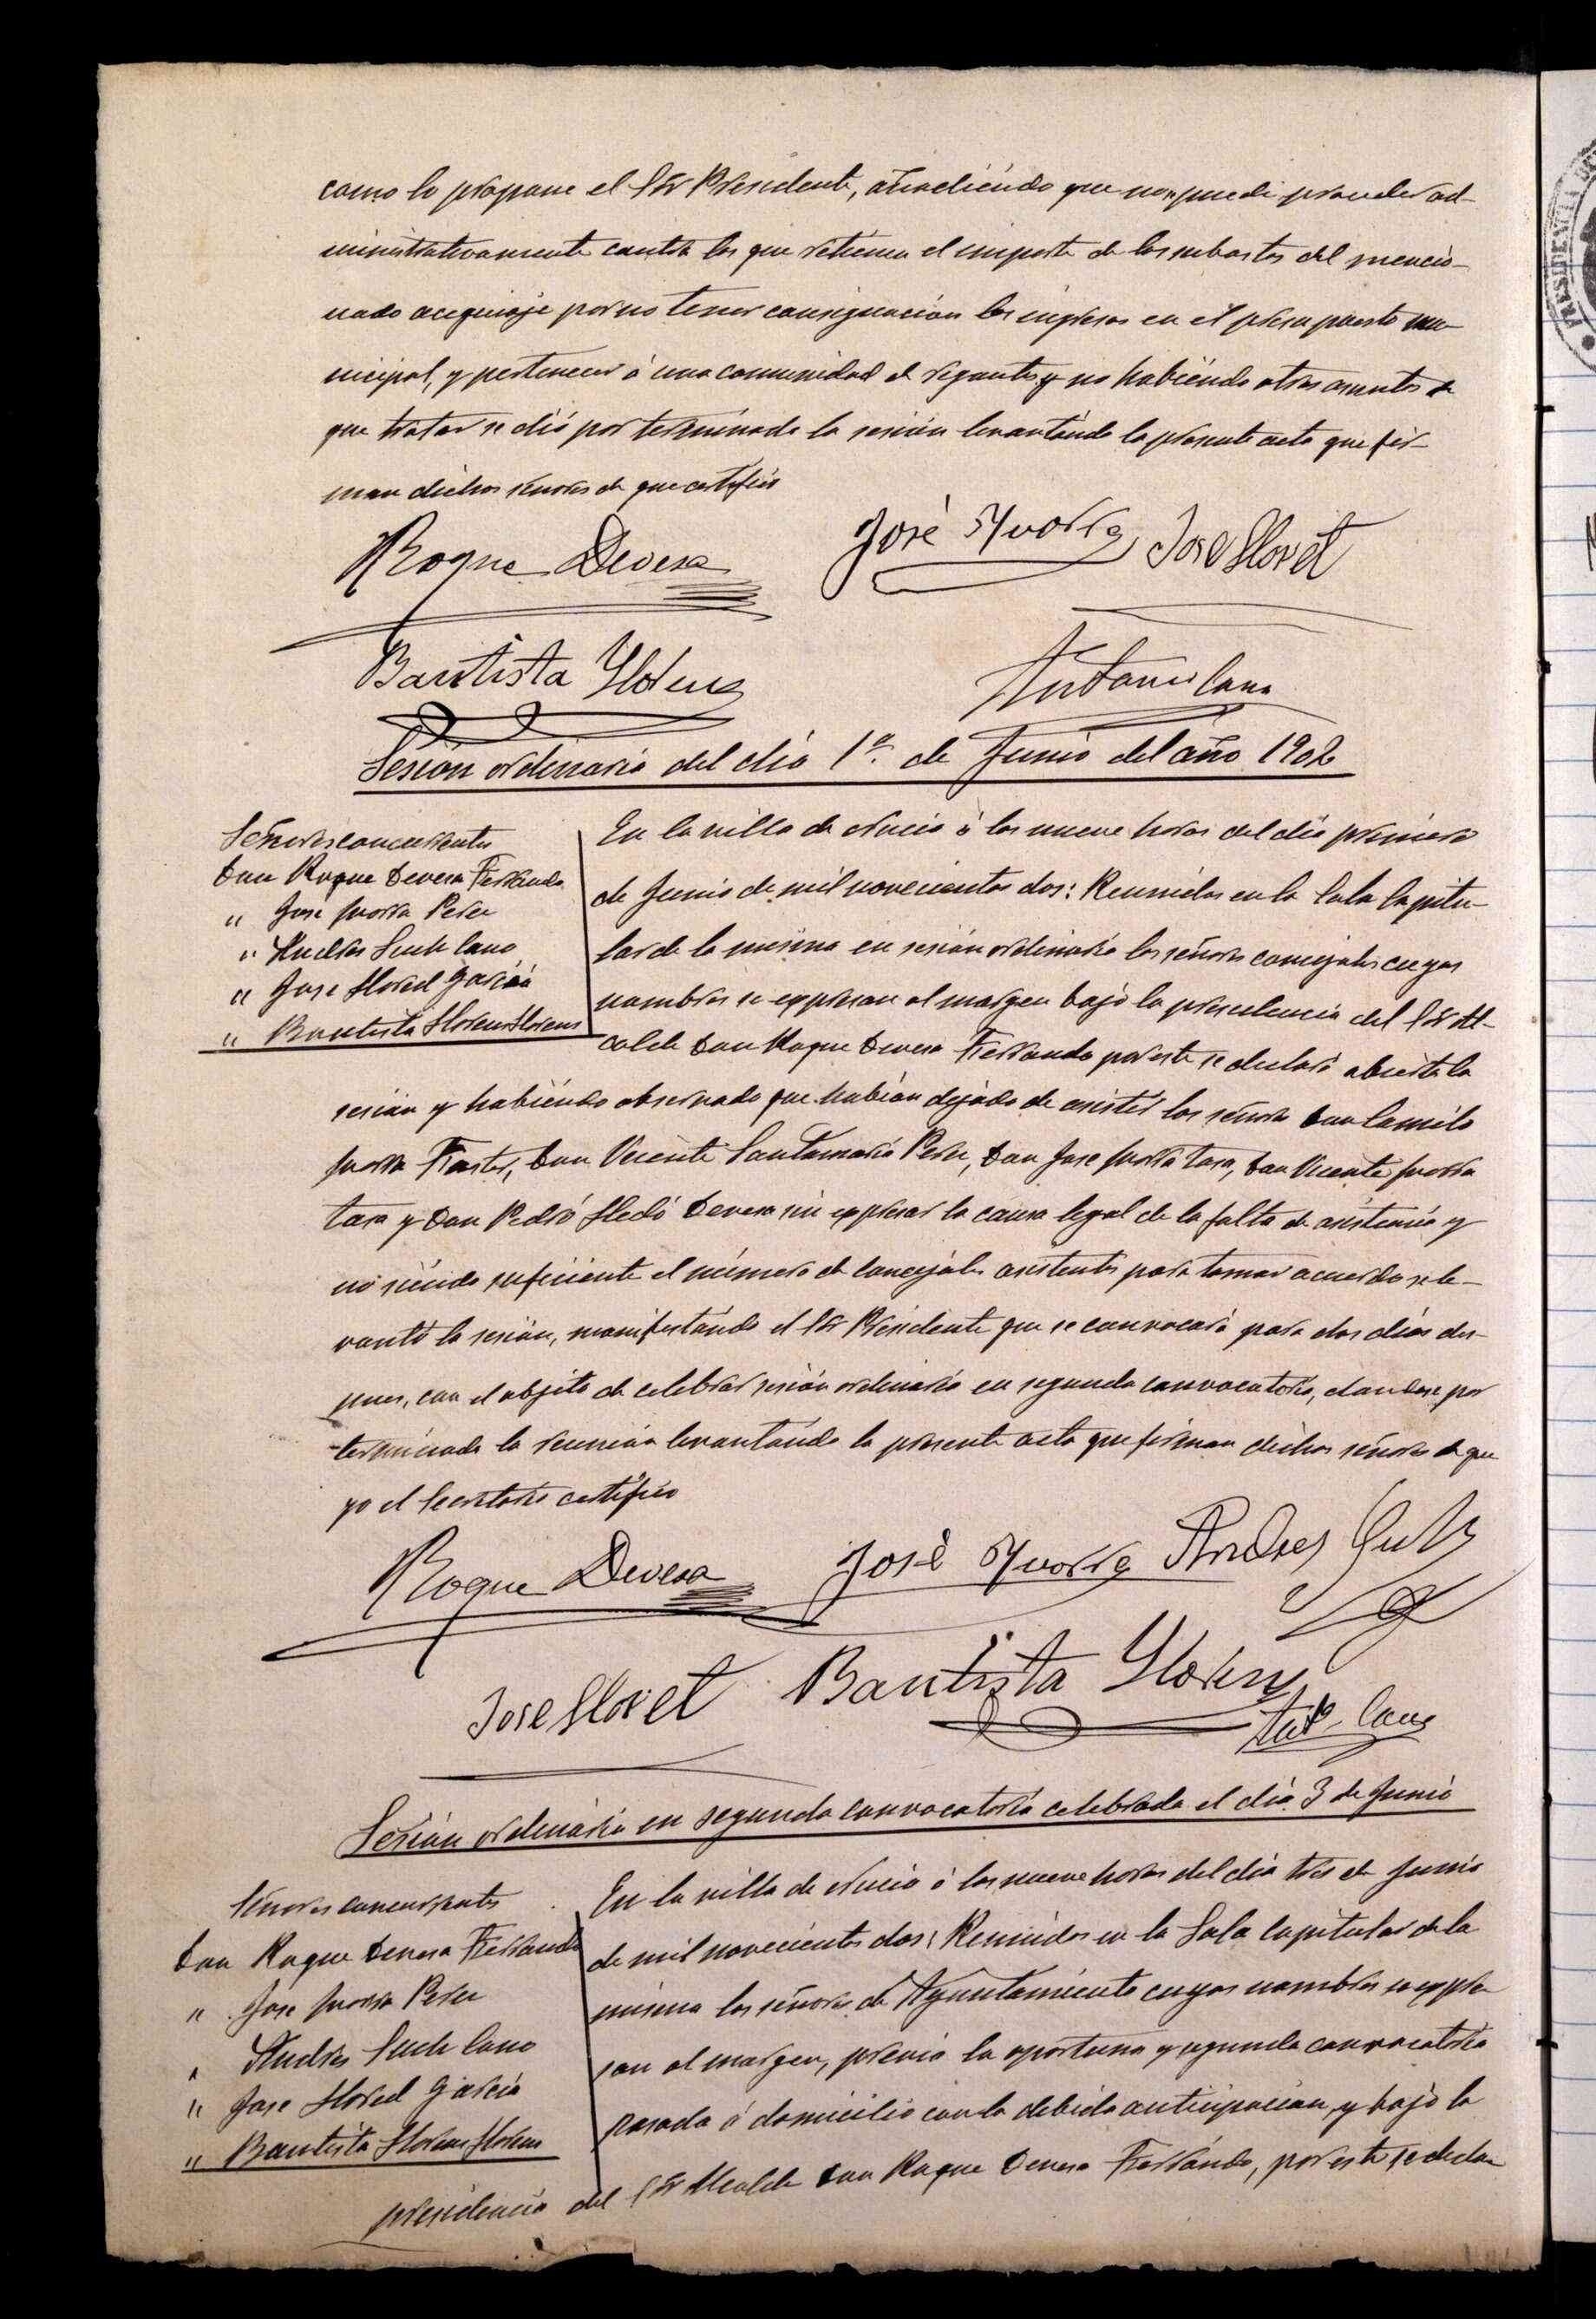 como lo propone el Sr Presidente, añadiéndo que no puede proceder ad-
ministrativamente contra los que retienen el importe de las subastas del mencio-
nado acequiaje por no tener consignación los ingresos en el presupuesto mu-
nicipal, y pertenecer á una comunidad de regantes y no habiéndo otros asuntos de
que tratar se dió por terminada la sesión levantándo la presente acta que fir-
man dichos señores de que certifico
Roque Devesa José Yvorra Jose Lloret
Bautista Llorens Antonio Cano
Sesión ordinaria del día 1º de Junio del año 1902
Señores concurrentes
Don Roque Devesa Ferrando
" José Ivorra Perez
" Andres Such Cano
" Jose Lloret García
" Bautista Llorens Llorens
En la villa de Nucia á las nueve horas del día primero
de Junio de mil novecientos dos: Reunidos en la Sala Capitu-
lar de la misma en sesión ordinaria los señores concejales cuyos
nombres se expresan al margen bajo la presidencia del Sr Al-
calde Don Roque Devesa Ferrando por este se declaró abierta la
sesión y habiéndo observado que habían dejado de asistir los señores Don Camilo
Ivorra Fuster, Don Vicente Santamaría Perez, Don Jose Ivorra Tasa, Don Vicente Ivorra
Tasa y Don Pedro Lledó Devesa sin expresar la causa legal de la falta de asistencia y
no siéndo suficiente el número de Concejales asistentes para tomar acuerdo se le-
vantó la sesión, manifestándo el Sr Presidente que se convocará para dos días des-
pues, con el objeto de celebrar sesión ordinaria en segunda convocatoria, dandose por
terminada la reunión levantándo la presente acta que firman dichos señores de que
yo el Secretario certifico
Roque Devesa José Yvorra Andres Such
Jose Lloret Bautista Llorens Antº Cano
Sesión ordinaria en segunda convocatoria celebrada el día 3 de Junio
Señores concurrentes
Don Roque Devesa Ferrando
" Jose Ivorra Perez
" Andres Such Cano
" Jose Lloret García
" Bautista Llorens Llorens
En la villa de Nucia á las nueve horas del día tres de Junio
de mil novecientos dos: Reunidos en la Sala Capitular de la
misma los señores de Ayuntamiento cuyos nombres se expre-
san al margen, previa la oportuna y segunda convocatoria
pasada á domicilio con la debida anticipación, y bajo la
presidencia del Sr Alcalde Don Roque Devesa Ferrándo, por este se decla-
PRESIDENCIA DE